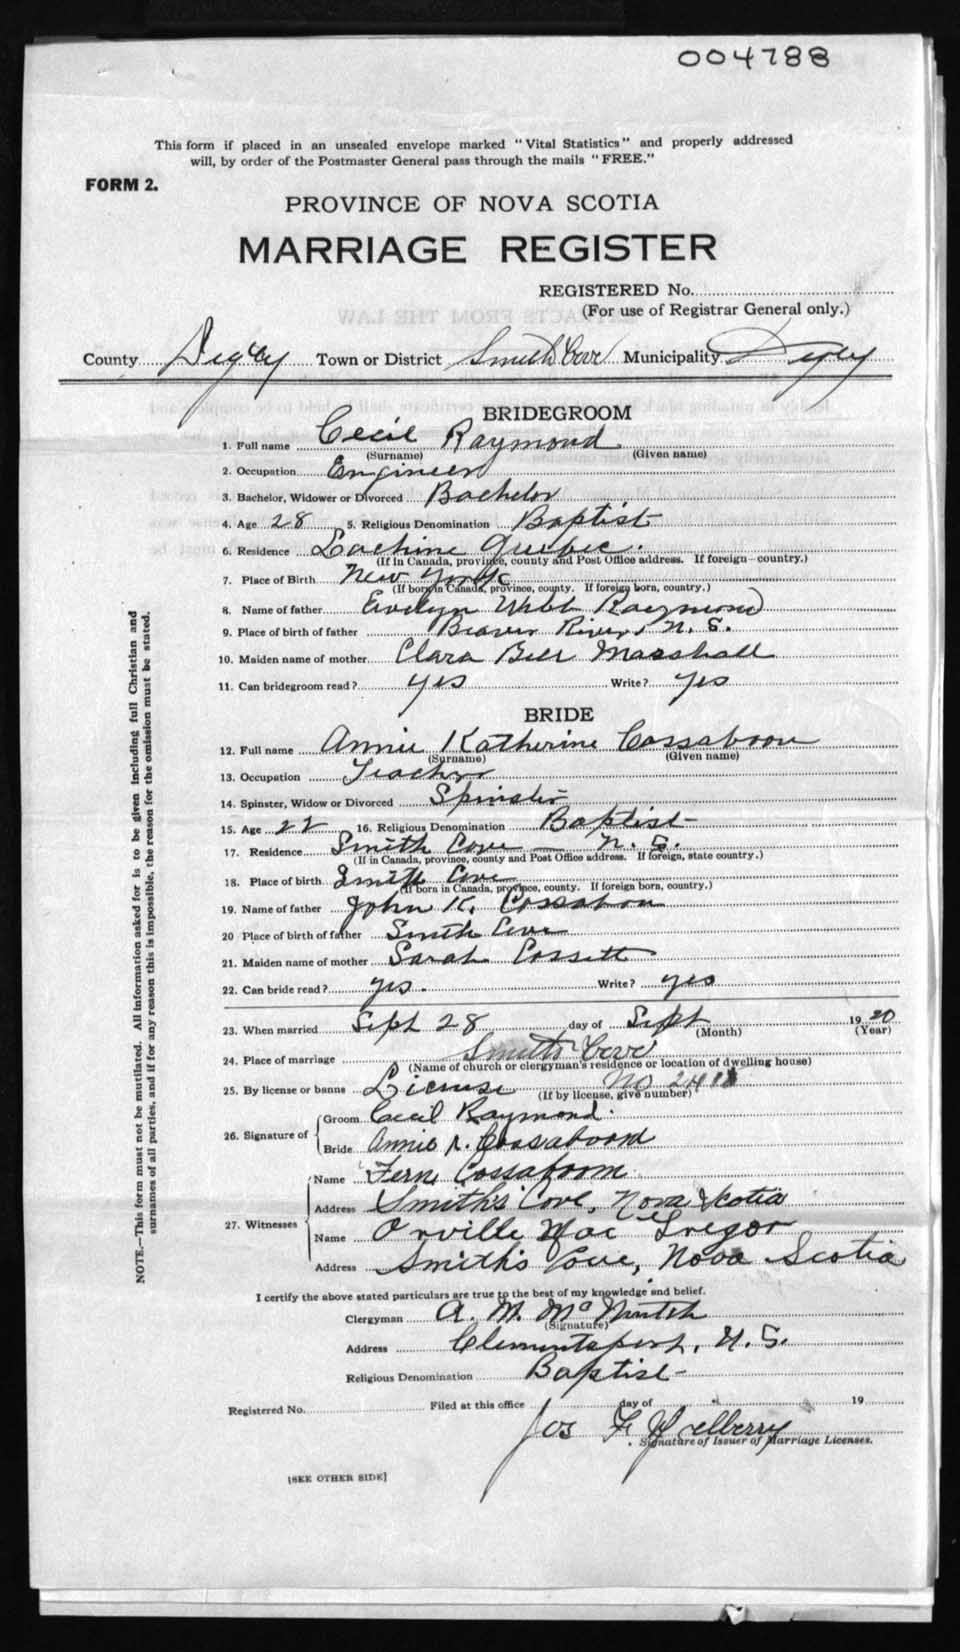 004788
This form if placed in an unsealed envelope marked "Vital Statistics" and properly addressed
will, by order of the Postmaster General pass through the mails "FREE."
FORM 2.
PROVINCE OF NOVA SCOTIA
MARRIAGE REGISTER
REGISTERED No.
(For use of Registrar General only.)
County Digby Town or District Smith Cove Municipality Digby
BRIDEGROOM
1. Full name Cecil Raymond
(Surname) (Given name)
2. Occupation Engineer
3. Bachelor, Widower or Divorced Bachelor
4. Age 28 5. Religious Denomination Baptist
6. Residence Lachine Quebec.
(If in Canada, province, county and Post Office address. If foreign—country.)
7. Place of Birth New York
(If born in Canada, province, county. If foreign born, country.)
8. Name of father Evelyn Webb Raymond
9. Place of birth of father Beaver River, N. S.
10. Maiden name of mother Clara Marshall
11. Can bridegroom read? yes Write? yes
BRIDE
12. Full name Annie Katherine Cossaboom
(Surname) (Given name)
13. Occupation Teacher
14. Spinster, Widow or Divorced Spinster
15. Age 22 16. Religious Denomination Baptist
17. Residence Smith Cove — N. S.
(If in Canada, province, county and Post Office address. If foreign, state country.)
18. Place of birth Smith Cove
(If born in Canada, province, county. If foreign born, country.)
19. Name of father John K. Cossaboom
20 Place of birth of father Smith Cove
21. Maiden name of mother Sarah Cossett
22. Can bride read? yes. Write? yes
23. When married Sept 28 day of Sept 1920
(Month) (Year)
24. Place of marriage Smiths Cove
(Name of church or clergyman's residence or location of dwelling house)
25. By license or banns License No
(If by license, give number)
26. Signature of Groom Cecil Raymond.
Bride Annie Cossaboom
27. Witnesses Name Fern Cossaboom
Address Smith's Cove, Nova Scotia
Name Orville MacGregor
Address Smith's Cove, Nova Scotia
I certify the above stated particulars are true to the best of my knowledge and belief.
Clergyman A. M. McNintch
(Signature)
Address Clementsport, N. S.
Religious Denomination Baptist
Registered No. Filed at this office day of 19
Jos F
Signature of Issuer of Marriage Licenses.
[SEE OTHER SIDE]
NOTE.—This form must not be mutilated. All information asked for is to be given including full Christian and
surnames of all parties, and if for any reason this is impossible, the reason for the omission must be stated.